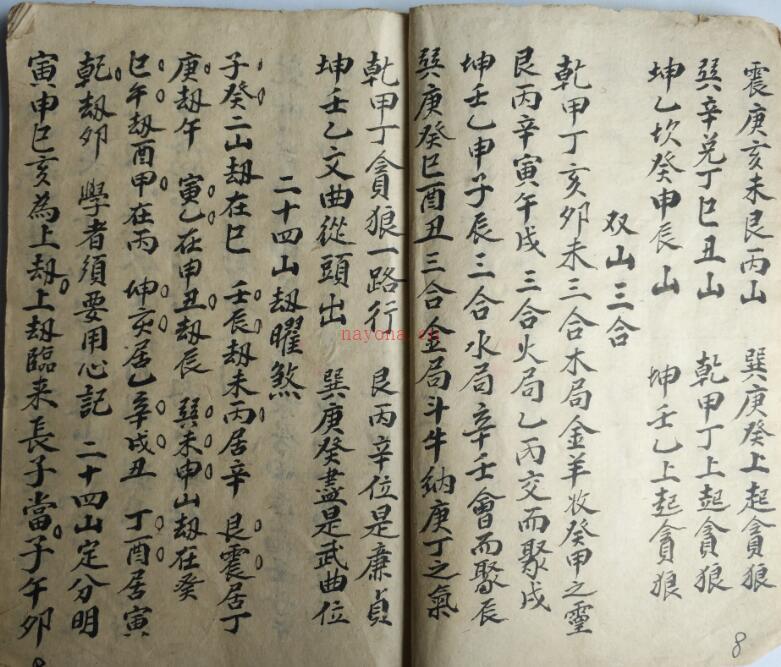 震庚亥未艮丙山　巽庚癸上起貪狼
巽辛兑丁巳丑山　乾甲丁上起貪狼
坤乙坎癸申辰山　坤壬乙上起貪狼
双山三合
乾甲丁亥夘未三合木局金羊收癸甲之靈
艮丙辛寅午戌三合火局乙丙交而聚戌
坤壬乙申子辰三合水局辛壬會而聚辰
巽庚癸巳酉丑三合金局斗牛納庚丁之氣
8
乾甲丁貪狼一路行　艮丙辛位是廉貞
坤壬乙文曲從頭出　巽庚癸盡是武曲位
二十四山劫曜煞
子癸二山劫在巳　壬辰劫未丙居辛　艮震居丁
庚劫午　寅乙在申丑劫辰　巽未申山劫在癸
巳午劫酉甲在丙　坤亥居乙辛戌丑　丁酉居寅
乾劫夘　學者須要用心記　二十四山定分明
寅申巳亥為上劫上劫臨来長子當子午夘
nayona.cn